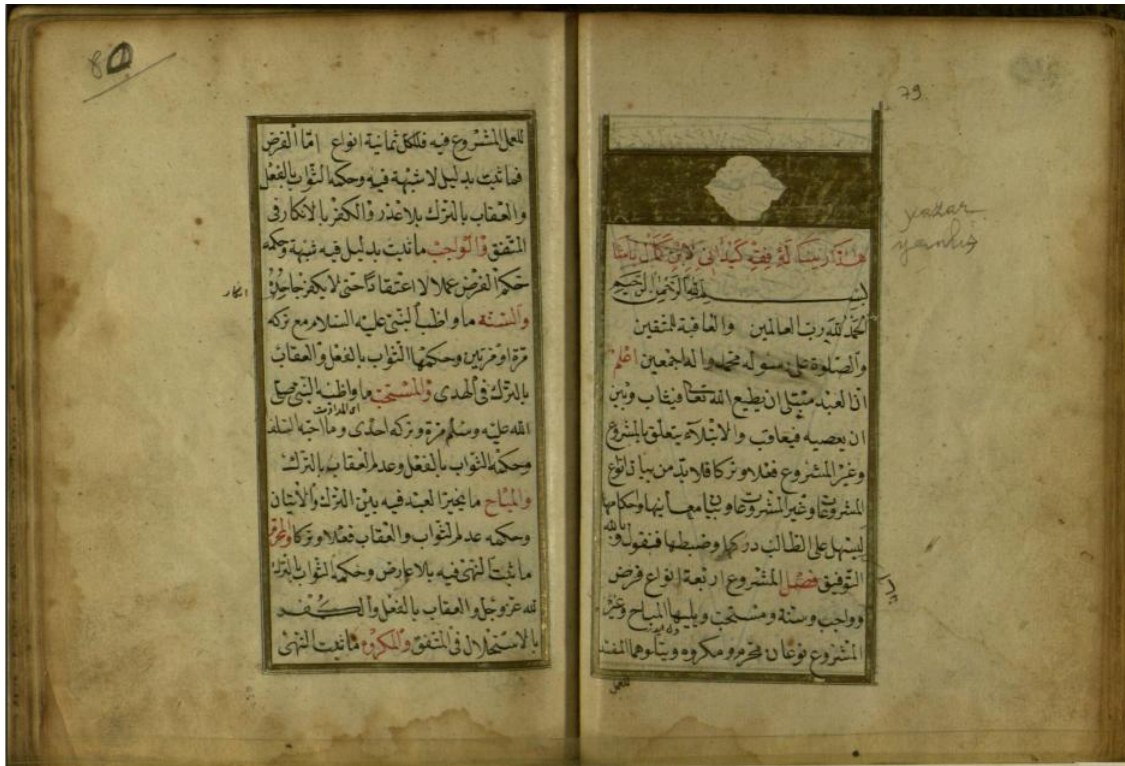 79
yazar
yanlış
هذه رسالة فقه كيداني لابن كمال پاشا
بسم الله الرحمن الرحيم
الحمد لله رب العالمين والعاقبة للمتقين
والصلوة على رسوله محمد واله اجمعين اعلم
ان العبد مبتلى ان يطيع الله تعا فيثاب وبين
ان يعصيه فيعاقب والابتلاء يتعلق بالمشروع
وغير المشروع فعلا وتركا فلا بد من بيان انواع
المشروعات وغير المشروعات وبيان معانيها واحكامها
ليسهل على الطالب دركها وضبطها فنقول وبالله
التوفيق فصل المشروع اربعة انواع فرض
وواجب وسنة ومستحب ويليها المباح وغير
المشروع نوعان محرم ومكروه ويتلوهما المفسد
للعمل
80
للعمل المشروع فيه فالكل ثمانية انواع اما الفرض
فما ثبت بدليل لا شبهة فيه وحكمه الثواب بالفعل
والعقاب بالترك بلا عذر والكفر بالانكار فى
المتفق والواجب ما ثبت بدليل فيه شبهة وحكمه
حكم الفرض عملا لا اعتقادا حتى لا يكفر جاحده
انكار
والسنة ما واظب النبى عليه السلام مع تركه
مرة او مرتين وحكمها الثواب بالفعل والعقاب
بالترك فى الهدى والمستحب ما واظبه النبى صلى
الله عليه وسلم مرة وتركه اخرى وما احبه السلف
وحكمه الثواب بالفعل وعدم العقاب بالترك
والمباح ما يخير العبد فيه بين الترك والاتيان
وحكمه عدم الثواب والعقاب فعلا وتركا والمحرم
ما ثبت النهى فيه بلا عارض وحكمه الثواب بالترك
لله عز وجل والعقاب بالفعل والكفر
بالاستحلال فى المتفق والمكروه ما ثبت النهى